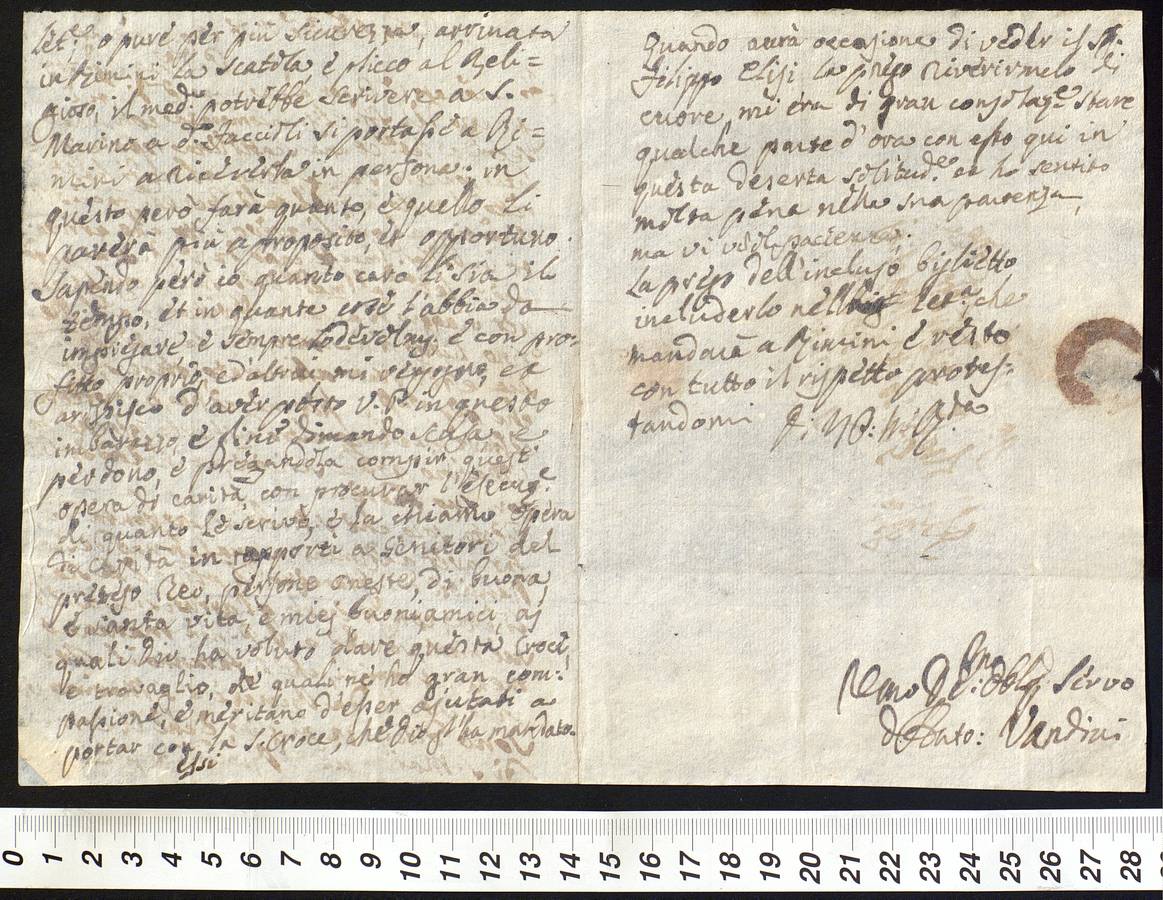 lett.e o pure per più sicurezza, arrivata
in Rimini la scatola, e plicco al Reli=
gioso, il med.o potrebbe scrivere a S.
Marino a d.o Faccioli si portasse a Ri=
mini a riceverla in persona. in
questo però farà quanto, e quello li
parerà più a proposito, et opportuno.
Sapendo però io quanto caro li sia il
tempo, et in quante cose l'abbia da
impiegare, e sempre lodevolm.e e con pro=
fitto proprio, e d'altrui mi vergogno, et
arosisco d'aver posto V. P. in questo
imbarazzo, e li ne dimando scusa e
perdono, e pregandola compir quest'
opera di carità con procurar l'esecuz.e
di quanto le scrivo, e la chiamo opera
di carità in rapporto a Genitori del
preteso Reo, persone oneste, di buona,
e santa vita, e miei buoni amici, ai
quali Dio ha voluto dare questa Croce,
e travaglio, de quali ne ho gran com=
passione, e meritano d'esser ajutati a
portar con la S. Croce, che Dio gl'ha mandato.
essi
Quando aurà occasione di veder il Sig.
Filippo Elisi la prego riverirmelo di
cuore, mi era di gran consolaz.e stare
qualche parte d'ora con esso qui in
questa deserta solitud.e et ho sentito
molta pena nella sua partenza,
ma vi vuol pacienza.
La prego dell'incluso biglietto
includerlo nella lett.a che
mandarà a Rimini e resto
con tutto il rispetto protes=
tandomi D. V. P. M. R.da
Um.o D.mo Obb.o Servo
Ant.o Vandini